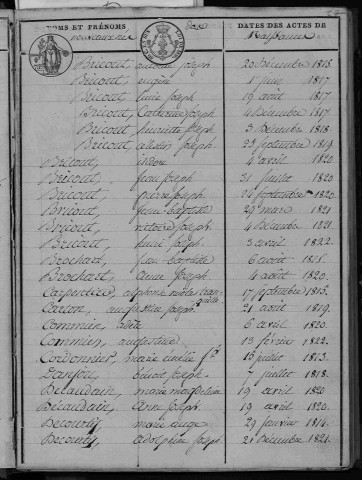 NOMS ET PRÉNOMS
DATES DES ACTES DE
Naissance
Bricout, Joseph 20 décembre 1816.
Bricout, eugène 1er juin 1817.
Bricout, Joseph 19 août 1817
Bricout, Catherine Joseph 4 décembre 1817
Bricout, henriette Joseph 3 décembre 1818.
Bricout, Joseph 23 septembre 1819.
Bricout, 4 avril 1820.
Bricout, Joseph 31 juillet 1820
Bricout, pierre Joseph 24 septembre 1820.
Bricout, Jean baptiste 29 mars 1821
Bricout, victoire Joseph 4 décembre 1821.
Bricout, Joseph. 3 avril 1822.
Brochart, Jean baptiste 6 août 1815.
Brochart, Joseph 4 août 1820.
Carpentier, alphonse 17 septembre 1813.
Carlon, augustine Joseph 21 août 1819.
Commien, 6 avril 1820.
Commien, augustine 13 février 1822.
Cordonnier, marie 15 juillet 1813.
Joseph. 7 juillet 1818.
Décaudain, marie magdeleine 19 avril 1820
Décaudain, Joseph. 19 avril 1820.
Decourty, marie 29 janvier 1814.
Decourty, adolphine Joseph. 21 décembre 1821.